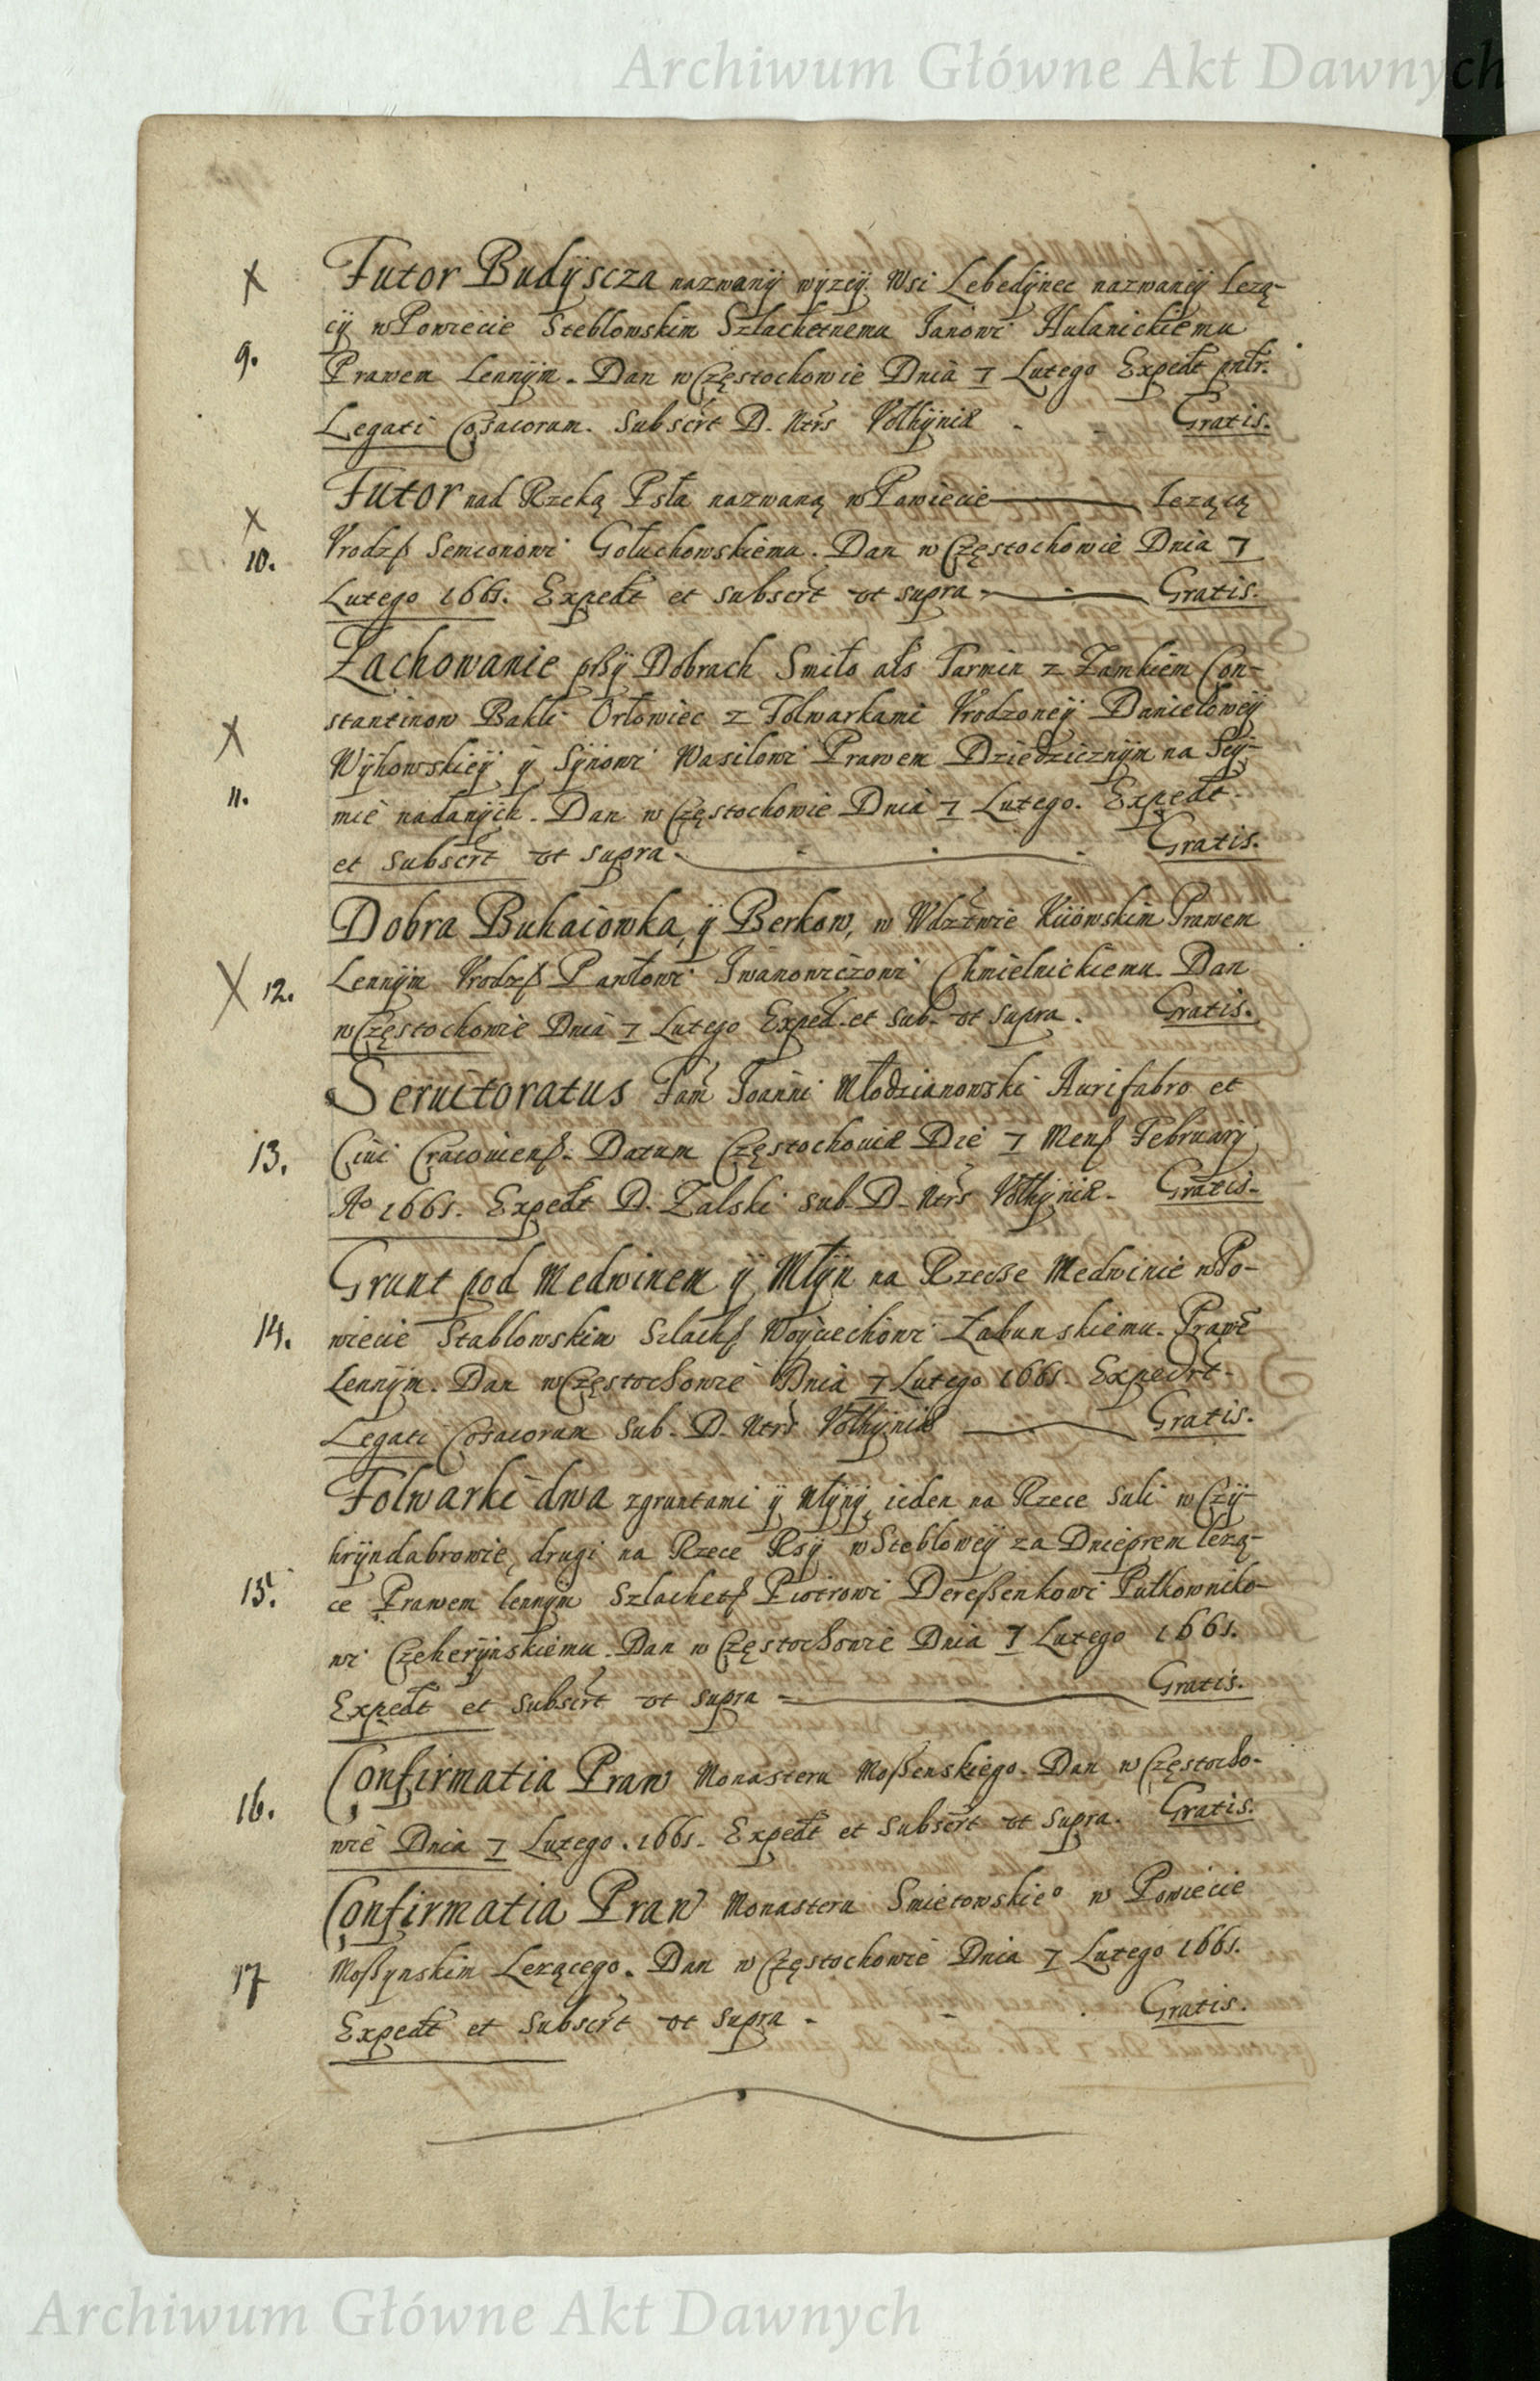 Archiwum Główne Akt Dawnych
X Futor Budÿscza nazwanÿ wÿzeÿ Wsi Lebedÿnec nazwaneÿ lezą-
cÿ w Powiecie Steblowskim Szlachetnemu Janowi Hulanickiemu
9. Prawem Lennÿm. Dan w Częstochowie Dnia 7 Lutego Expedt pntr.
Legati Cosacorum. Subscrt D. Ntrs Volhÿniæ - - Gratis.
Futor nad Rzeką Psła nazwaną w Powiecie lezącą
X 10. Vrodzß Semionowi Gołuchowskiemu. Dan w Częstochowie Dnia 7
Lutego 1661. Expedt et subscrt vt supra Gratis.
Zachowanie pßÿ Dobrach Smiło als Tarmin z Zamkiem Con-
stantinow Bakli Orłowiec z Folwarkami Vrodzoneÿ Danieloweÿ
X Wÿhowskieÿ ÿ Sÿnowi Wasilowi Prawem Dziedzicznÿm na Seÿ-
11. mie nadanÿch. Dan w Częstochowie Dnia 7 Lutego. Expedt
et subscrt vt supra. Gratis.
Dobra Buhaiowka, ÿ Berkow, w Wdztwie Kiiowskim Prawem
X 12. Lennÿm Vrodzß Pawłowi Iwanowiczowi Chmielnickiemu. Dan
w Częstochowie Dnia 7 Lutego Exped. et sub. vt supra. Gratis.
Seruitoratus Fam Joanni Młodzianowski Aurifabro et
13. Ciui Cracouienß. Datum Częstochouiæ Die 7 Menß Februarÿ
Ao 1661. Expedt D. Zalski sub. D. Ntrs Volhÿniæ. Gratis.
Grunt pod Medwinem ÿ Młÿn na Rzecse Medwinie w Po-
14. wiecie Stablowskim Szlachß Woyciechowi Zabunskiemu. Prawe
Lennÿm. Dan w Częstochowie Dnia 7 Lutego 1661. Expedrt.
Legati Cosacorum sub. D. Ntrs Volhÿniæ Gratis.
Folwarki dwa zgruntami ÿ Młÿnÿ, ieden na Rzece Suli w Czÿ-
hrÿndabrowie, drugi na Rzece Rsÿ w Stebloweÿ za Dnieprem lezą-
15. ce Prawem lennÿm Szlachetß Piotrowi Dereßenkowi Pułkowniko-
wi Czeherÿnskiemu. Dan w Częstochowie Dnia 7 Lutego 1661.
Expedt et subscrt vt supra Gratis.
Confirmatia Praw Monasteru Moßenskiego. Dan w Częstocho-
16. wie Dnia 7 Lutego. 1661. Expedt et subscrt vt supra. Gratis.
Confirmatia Praw Monasteru Smietowskieo w Powiecie
17 Moßynskim Lezącego. Dan w Częstochowie Dnia 7 Lutego 1661.
Expedt et subscrt vt supra - - . Gratis.
Archiwum Główne Akt Dawnych